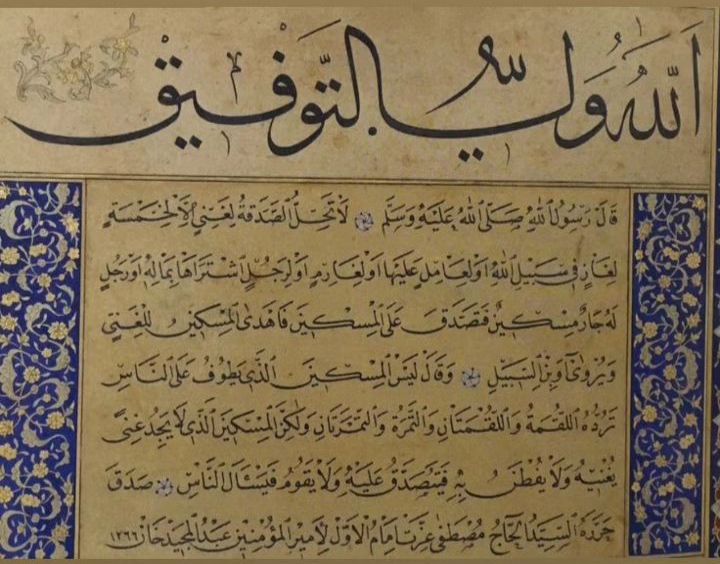 اَللّٰهُ وَلِيُّ التَّوْفِيقْ
قَالَ رَسُولُ اللّٰهِ صَلَّى اللّٰهُ عَلَيْهِ وَسَلَّمَ لَا تَحِلُّ الصَّدَقَةُ لِغَنِيٍّ اِلَّا لِخَمْسَةٍ
لِغَازٍ فِي سَبِيلِ اللّٰهِ اَوْ لِعَامِلٍ عَلَيْهَا اَوْ لِغَارِمٍ اَوْ لِرَجُلٍ اشْتَرَاهَا بِمَالِهِ اَوْ رَجُلٍ
لَهُ جَارٌ مِسْكِينٌ فَتَصَدَّقَ عَلَى الْمِسْكِينِ فَاَهْدَى الْمِسْكِينُ لِلْغَنِيِّ
وَيُرْوَى اَوِ ابْنِ السَّبِيلِ وَقَالَ لَيْسَ الْمِسْكِينُ الَّذِي يَطُوفُ عَلَى النَّاسِ
تَرُدُّهُ اللُّقْمَةُ وَاللُّقْمَتَانِ وَالتَّمْرَةُ وَالتَّمْرَتَانِ وَلٰكِنَّ الْمِسْكِينَ الَّذِي لَا يَجِدُ غِنًى
يُغْنِيهِ وَلَا يُفْطَنُ بِهِ فَيُتَصَدَّقُ عَلَيْهِ وَلَا يَقُومُ فَيَسْئَالُ النَّاسَ صَدَقَ
حَرَّرَهُ السَّيِّدُ الْحَاجُّ مُصْطَفٰى عِزَّتْ اِمَامُ الْاَوَّلِ لِاَمِيرِ الْمُؤْمِنِينَ عَبْدُ الْمَجِيدِ خَانْ ١٢٦٦